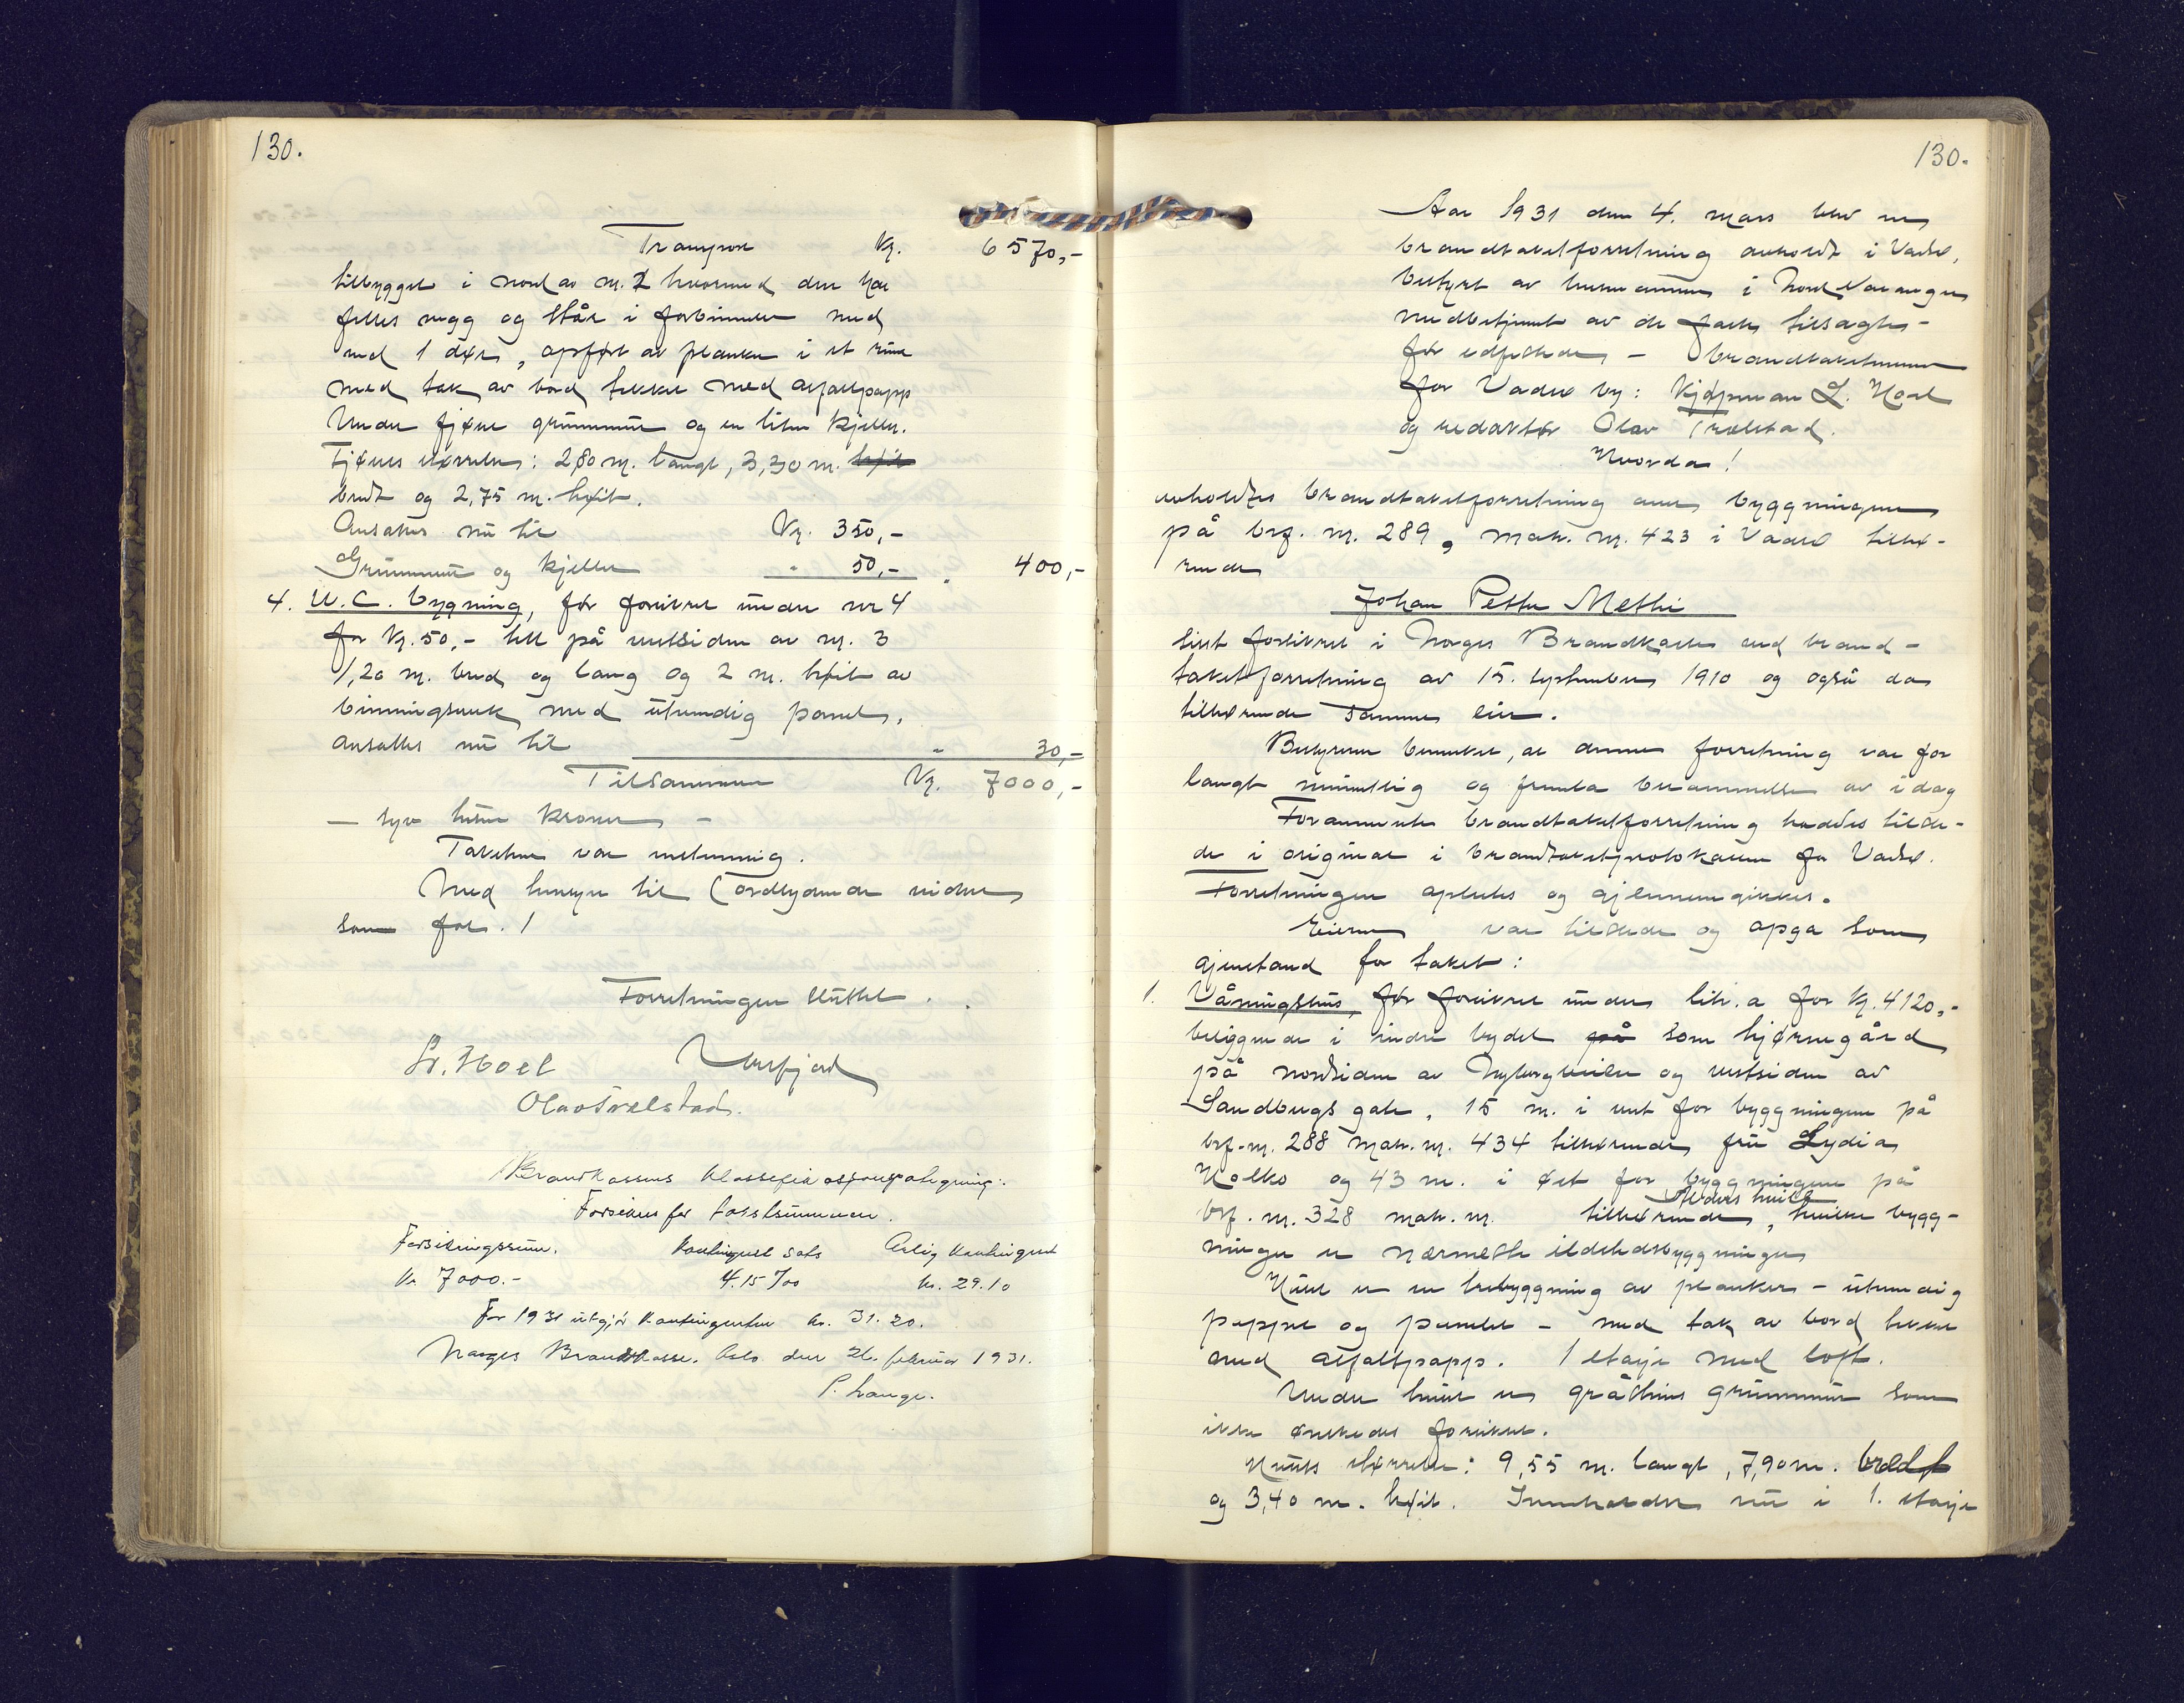 130.
Transport Kr. 6570,-
tilbygget i nord av nr. 2 hvormed den har
felles vegg og står i forbindelse med
med 1 dør, opført av planker i et rum
med tak av bord tekket med asfaltpapp
Under fjøset grunnmur og en liten kjeller.
Fjøsets størrelse: 2,80 m. langt, 3,30 m. høit
bredt og 2,75 m. høit.
Ansattes nu til Kr. 350,-
Grunnmur og kjeller " 50,- " 400,-
4. W.C. bygning, før forsikret under nr 4
for Kr. 50,- tett på vestsiden av nr. 3
1,20 m. bred og lang og 2 m. høit av
bindingsverk med utvendig panel.
Ansattes nu til " 30,-
Tilsammen Kr. 7000,-
— syv tusen kroner —
Taksten var enstemmig.
Med hensyn til (ordlydende videre
som før.)
Forretningen sluttet.
Lr. Hoel
Olav Trælstad.
Brandkassens klassefikasjonspategning:
Forsikres for takstsummen.
Forsikringssum. Kontingent sats Årlig kontingent
Kr 7000.- 4.15 ‰ kr. 29.10
For 1931 utgjør kontingenten kr. 31.20.
Norges Brandkasse. Oslo den 26. februar 1931.
P. Lange.
130.
Aar 1931 den 4. mars blev en
brandtakstforretning avholdt i Vadsø,
bestyrt av lensmannen i Nord Varanger
medbetjent av de faste tilsagte -
før edfestede - brandtakstmenn
for Vadsø by: Kjøpman L. Hoel
og redaktør Olav Trælstad.
Hvorda!
avholdtes brandtakstforretning over byggningene
på brf. nr. 289, matr. nr. 423 i Vadsø tilhø-
rende
Johan Petter Methi
sist forsikret i Norges Brandkasse ved brand-
takstforretning av 15. september 1910 og også da
tilhørende samme eier.
Bestyreren bemerket, at denne forretning var for-
langt mundtlig og fremla berammelse av idag
Forannevnte brandtakstforretning haddes tilste-
de i original i brandtakstprotokollen for Vadsø.
Forretningen oplestes og gjennemgikkes.
Eieren var tilstede og opga som
gjenstand for takst:
1. Våningshus, før forsikret under litr. a for Kr. 4120,-
beliggende i indre bydel på som hjørnegård
på nordsiden av Nyborgveien og vestsiden av
Sandbugs gate, 15 m. i vest for byggningene på
brf. nr. 288 matr. nr. 434 tilhørende fru Lydia
Kolko og 43 m. i øst for byggningene på
brf. nr. 328 matr. nr. tilhørende Aldershvile, hvilke bygg-
ninger er nærmeste ildstedsbyggninger
Huset er en trebyggning av planker - utvendig
pappet og panelet - med tak av bord tekket
med asfaltpapp. 1 etasje med loft.
Under huset er gråstens grunnmur som
ikke ønskedes forsikret.
Husets størrelse: 9,55 m. langt, 7,90 m. bredt
og 3,40 m. høit. Inneholder nu i 1. etasje